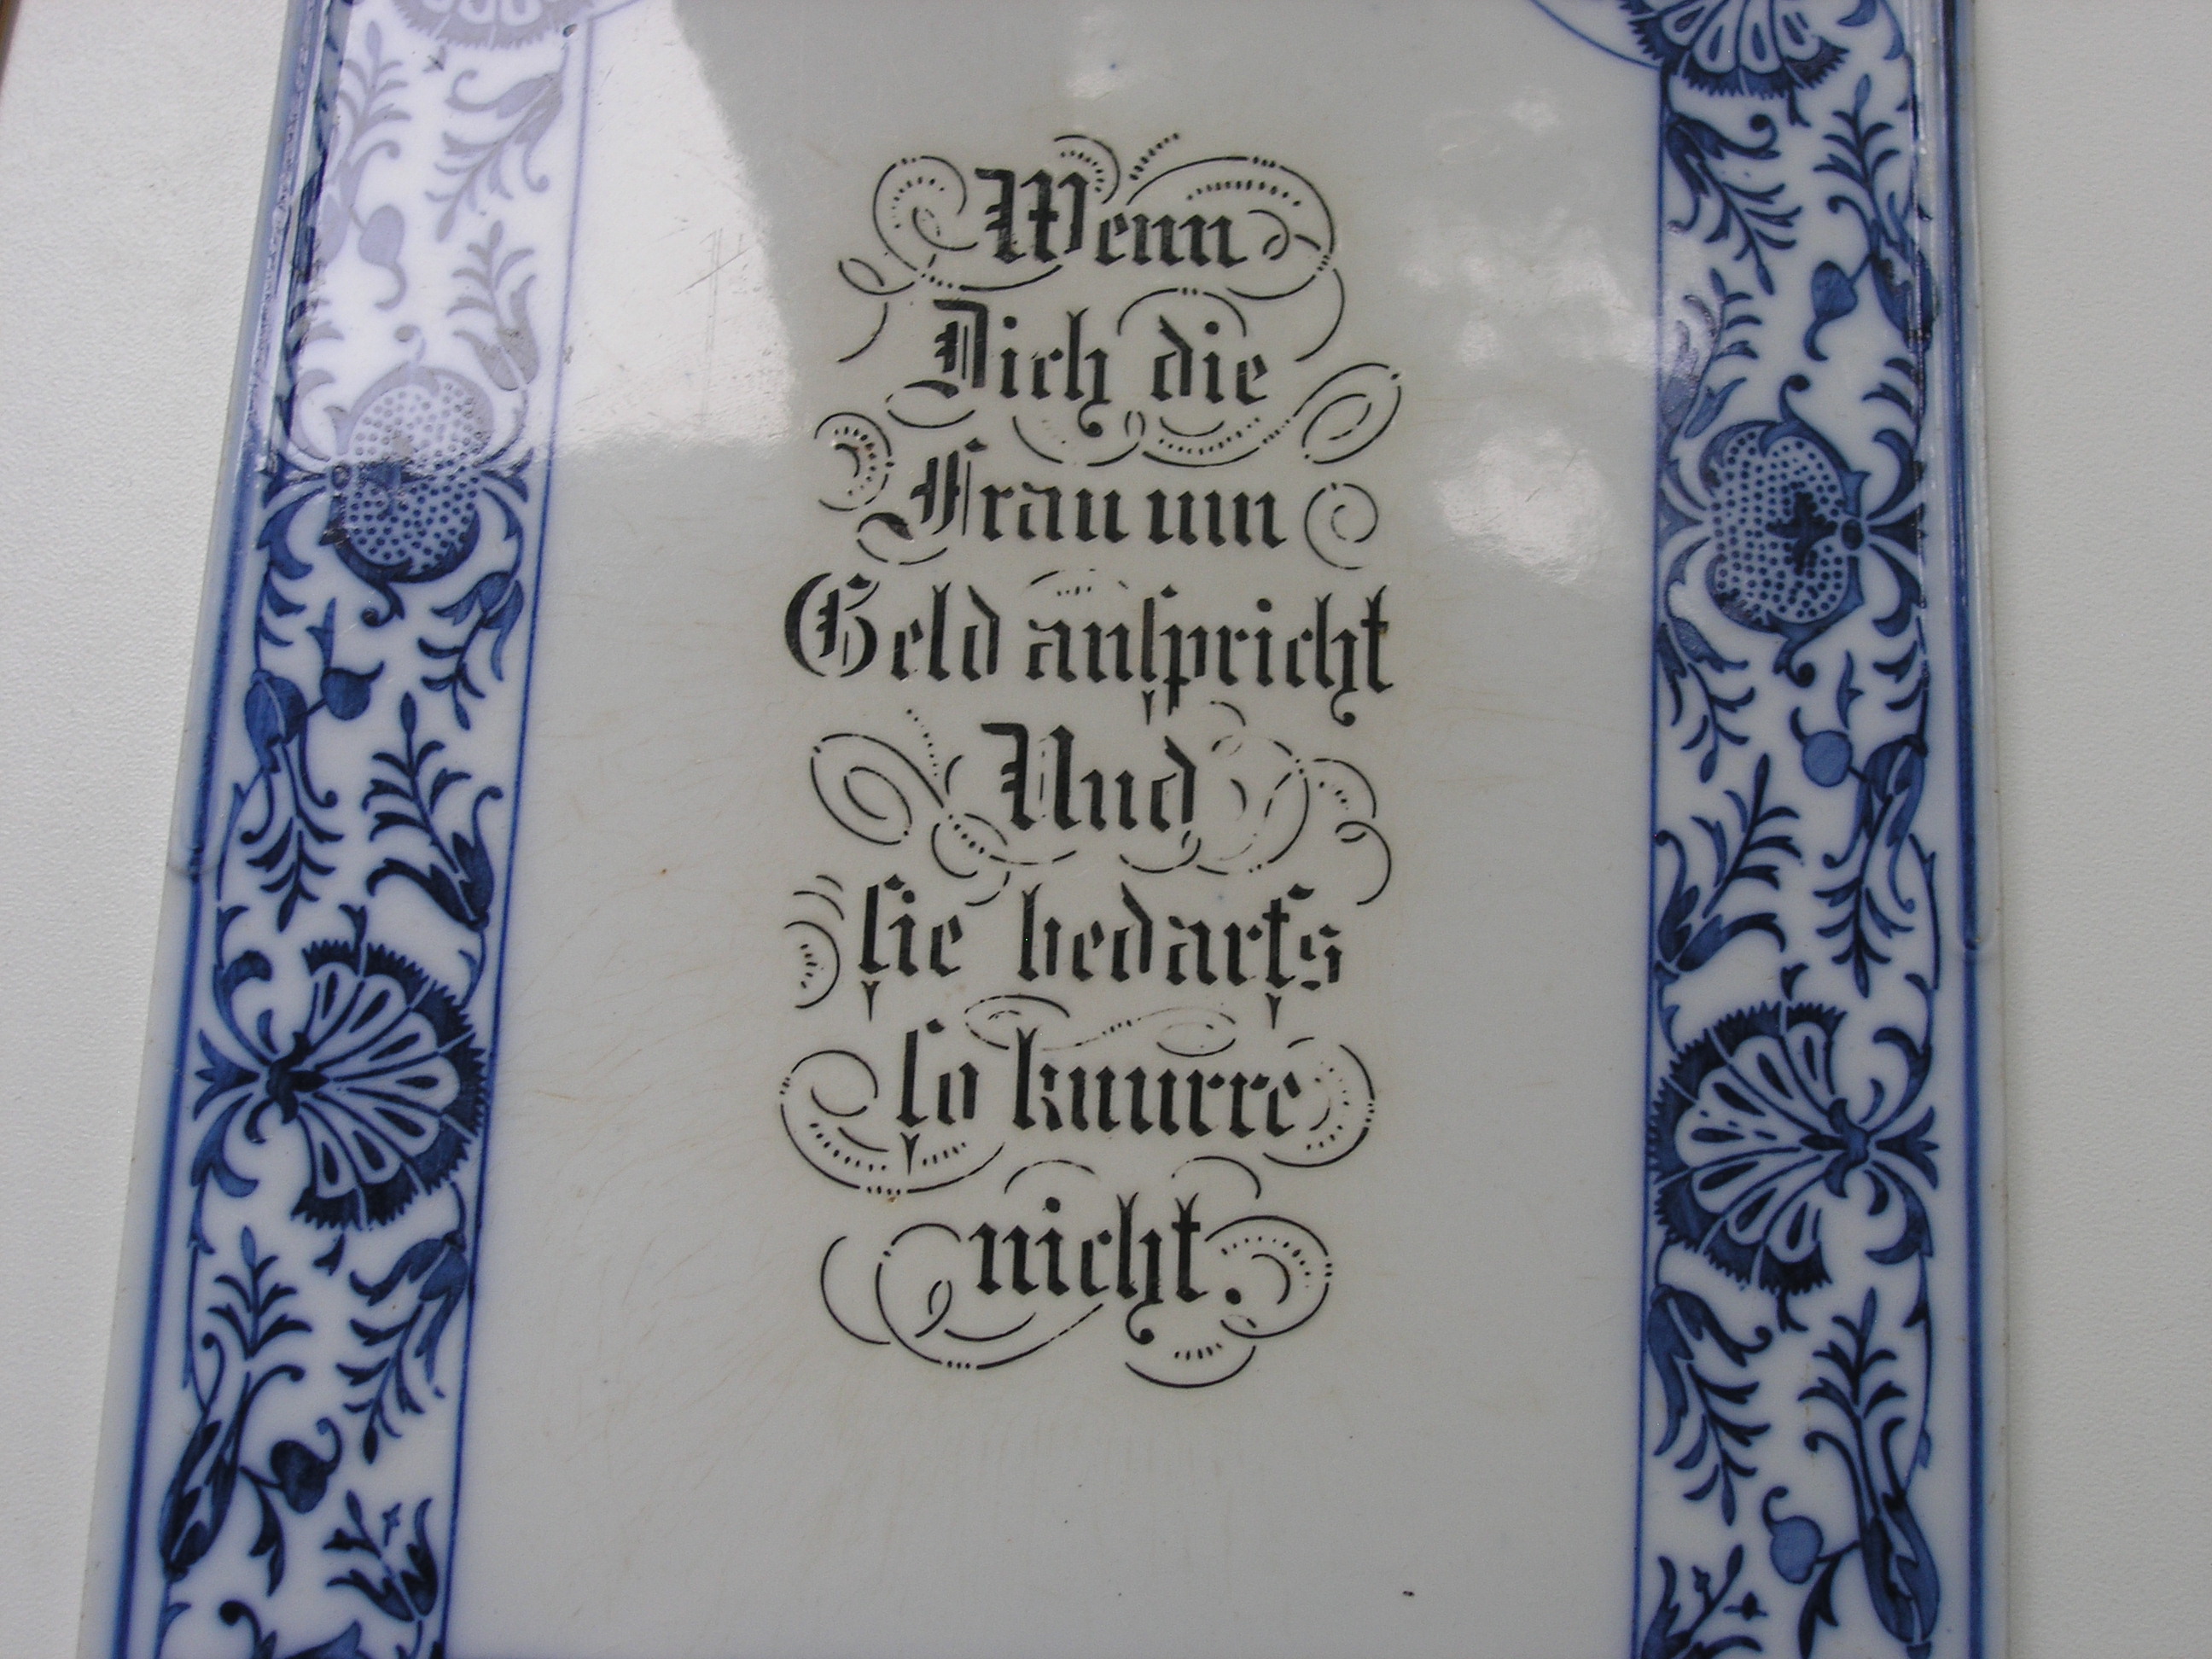 Wenn
Dich die
Frau um
Geld anspricht
Und
sie bedarfs
so knurre
nicht.